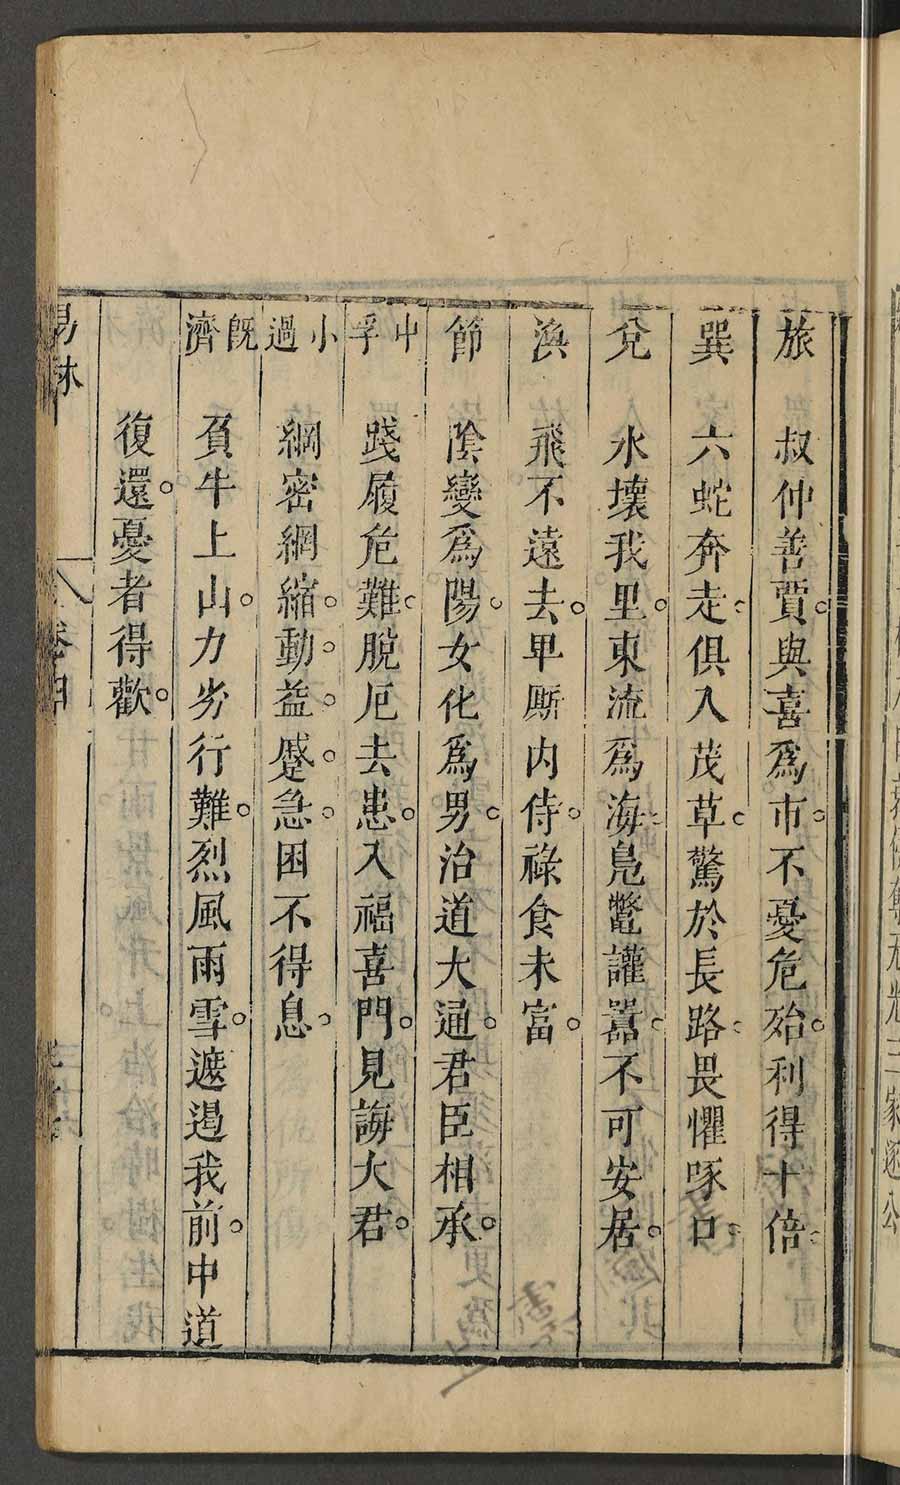 旅　叔仲善賈。與喜爲市。不憂危殆。利得十倍。
巽　六蛇奔走。俱入茂草。驚於長路。畏懼啄口。
兌　水壞我里。東流爲海。鳧鼈讙嚻。不可安居。
渙　飛不遠去。卑廝内侍。祿食未富。
節　陰變爲陽。女化爲男。治道大通。君臣相承。
中孚　踐履危難。脫厄去患。入福喜門。見誨大君。
小過　網密網縮。動。益。蹙。急。困不得息。
旣濟　負牛上山。力劣行難。烈風雨雪。遮遏我前。中道
復還。憂者得歡。
易林　卷四